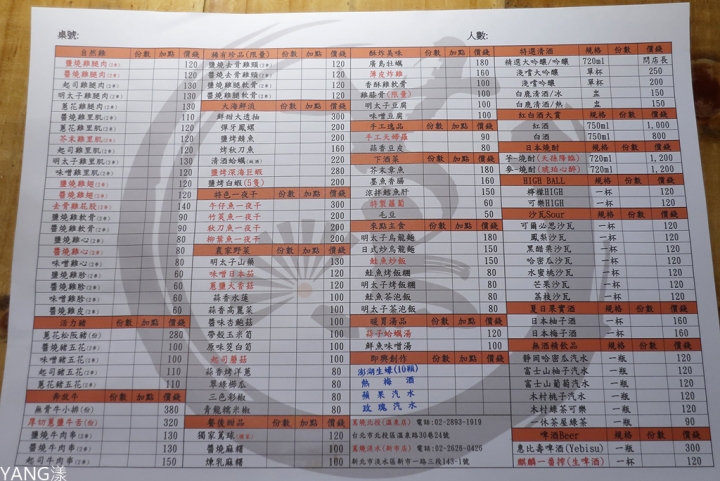 桌號:
人數:
自然雞 份數 加點 價錢
鹽燒雞腿肉(2串) 120
醬燒雞腿肉(2串) 120
起司雞腿肉(2串) 130
明太子雞腿肉(2串) 130
蔥花雞腿肉(2串) 130
醬燒雞里肌(2串) 110
蔥花雞里肌(2串) 120
芥末雞里肌(2串) 120
起司雞里肌(2串) 120
明太子雞里肌(2串) 130
味噌雞里肌(2串) 120
鹽燒雞翅(2串) 120
醬燒雞翅(2串) 120
去骨雞花股(2串) 140
鹽燒雞軟骨(2串) 90
醬燒雞軟骨(2串) 90
鹽燒雞心(2串) 80
醬燒雞心(2串) 80
味噌雞心(2串) 80
鹽燒雞胗(2串) 60
醬燒雞胗(2串) 60
味噌雞胗(2串) 60
醬燒雞皮(2串) 80
活力豬 份數 加點 價錢
蔥花松阪豬(2串) 280
醬燒豬五花(2串) 100
味噌豬五花(2串) 100
起司豬五花(2串) 110
蔥花豬五花(2串) 110
奔放牛 份數 加點 價錢
無骨牛小排(份) 380
厚切蔥鹽牛舌(份) 320
鹽燒牛肉串(2串) 130
醬燒牛肉串(2串) 130
起司牛肉串(2串) 150
稀有珍品(限量) 份數 加點 價錢
鹽燒去骨雞頸(2串) 120
醬燒去骨雞頸(2串) 120
鹽燒雞腿軟骨(2串) 120
醬燒雞腿軟骨(2串) 120
大海鮮派 份數 加點 價錢
鮮甜大透抽 300
彈牙鳳螺 200
鹽烤鯖魚 200
烤秋刀魚 160
清酒蛤蠣 220
鹽烤深海巨蝦 280
鹽烤白蝦(5隻) 200
特色一夜干 份數 加點 價錢
午仔魚一夜干 300
竹莢魚一夜干 200
秋刀魚一夜干 200
柳葉魚一夜干 200
農家野菜 份數 加點 價錢
明太子山藥 130
味噌日本茄 120
蔥鹽大香菇 120
蒜香水蓮 100
蒜香高麗菜 100
醬味杏鮑菇 100
帶殼玉米筍 100
原味筊白筍 100
起司蘑菇 100
蒜香烤洋蔥 80
翠綠櫛瓜 80
三色彩椒 80
青龍糯米椒 80
餐後甜品 份數 加點 價錢
獨家篤球 100
醬燒麻糬 100
煉乳麻糬 100
酥炸美味 份數 加點 價錢
廣島牡蠣 180
薄皮炸雞 160
香酥雞軟骨 100
雞膝骨(限量) 100
明太子豆腐 100
味噌豆腐 100
手工逸品 份數 加點 價錢
手工天婦羅 90
蒜香豆皮 90
下酒菜 份數 加點 價錢
芥末章魚 80
墨魚香腸 160
涼拌鱈魚肝 150
特製蘿蔔 60
毛豆 50
來點主食 份數 加點 價錢
明太子烏龍麵 180
日式炒烏龍麵 150
鮭魚炒飯 150
鮭魚烤飯糰 80
明太子烤飯糰 80
鮭魚茶泡飯 80
明太子茶泡飯 80
暖胃湯品 份數 加點 價錢
蒜子蛤蠣湯 120
鮮魚味噌湯 100
即興創作 份數 加點 價錢
澎湖生蠔(10顆)
熱梅酒
蘋果汽水
玫瑰汽水
電話:02-2893-1919
台北市北投區溫泉路30巷24號
電話:02-2620-0426
新北市淡水區新市一路三段143-1號
特選清酒 規格 份數 價錢
精選大吟釀/吟釀 720ml 問店長
淺嚐大吟釀 單杯 250
淺嚐吟釀 單杯 200
白鹿清酒/冰 壺 150
白鹿清酒/熱 壺 150
紅白酒大賞 規格 份數 價錢
紅酒 750ml 1,000
白酒 750ml 800
日本燒酎 規格 份數 價錢
芋-燒酎(天孫降臨) 720ml 1,200
麥-燒酎(琥珀心醉) 720ml 1,200
HIGH BALL 規格 份數 價錢
檸檬HIGH 一杯 120
可樂HIGH 一杯 120
沙瓦Sour 規格 份數 價錢
可爾必思沙瓦 一杯 120
鳳梨沙瓦 一杯 120
黑醋栗沙瓦 一杯 120
哈密瓜沙瓦 一杯 120
水蜜桃沙瓦 一杯 120
芒果沙瓦 一杯 120
荔枝沙瓦 一杯 120
夏日果實酒 規格 份數 價錢
日本柚子酒 一杯 160
日本梅子酒 一杯 160
無酒精飲品 規格 份數 價錢
靜岡哈密瓜汽水 一瓶 120
富士山柚子汽水 一瓶 120
富士山葡萄汽水 一瓶 120
木村桃子汽水 一瓶 120
木村綠茶可樂 一瓶 120
一休茶屋綠茶 一瓶 90
啤酒Beer 規格 份數 價錢
惠比壽啤酒(Yebisu) 一瓶 300
麒麟一番搾(生啤酒) 一杯 120
YANG漾